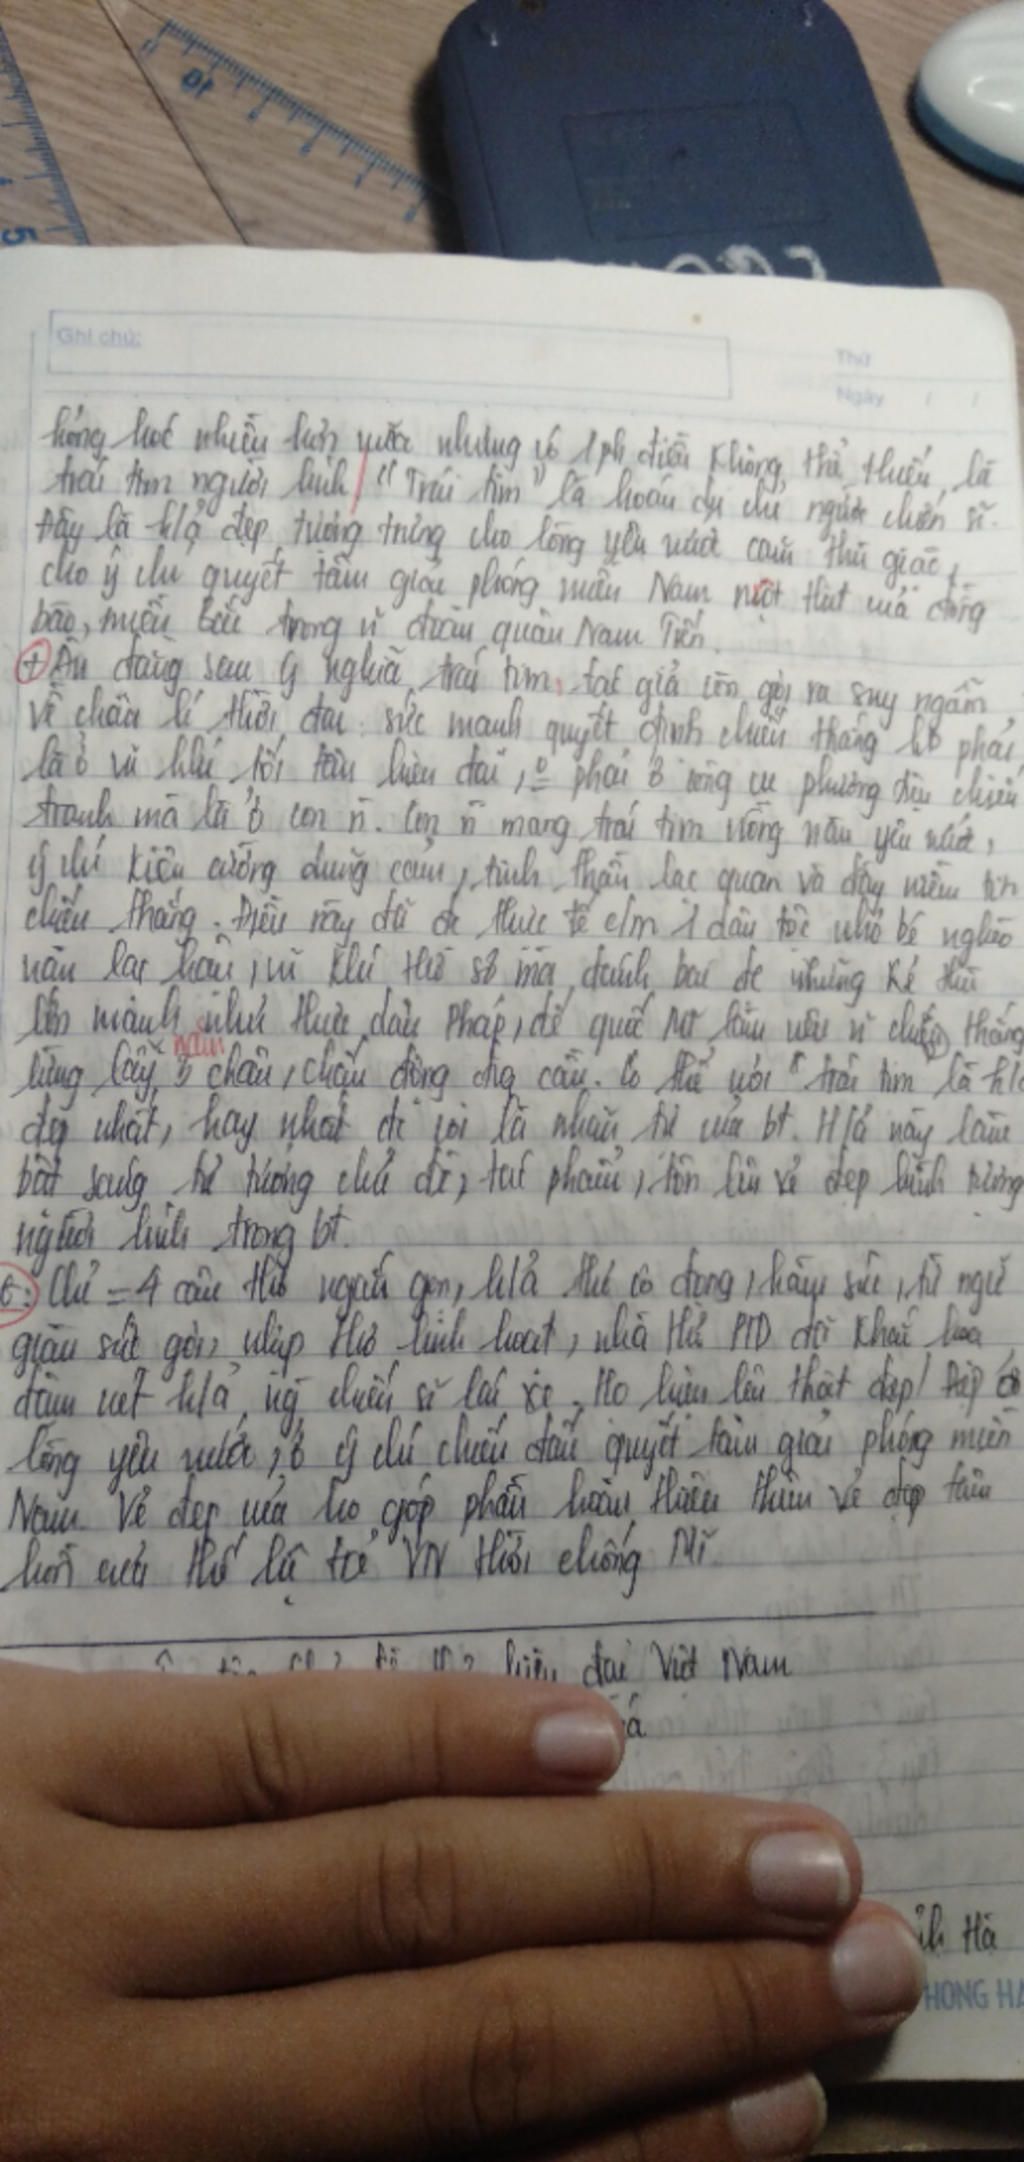 10
5
Ghi chú:
Thứ
Ngày / /
hỏng hóc nhiều hơn nữa nhưng có 1 ph điều không thể thiếu là
trái tim người lính / "Trái tim" là hoán dụ chỉ người chiến sĩ.
Đây là h/ả đẹp, tượng trưng cho lòng yêu nước căm thù giặc,
cho ý chí quyết tâm giải phóng miền Nam ruột thịt của đồng
bào, miền Bắc trong đoàn quân Nam Tiến.
+ Ẩn đằng sau ý nghĩa trái tim, tác giả còn gợi ra suy ngẫm
về chân lí thời đại: sức mạnh quyết định chiến thắng ko phải
là ở vũ khí tối tân hiện đại, phải ở công cụ phương tiện chiến
tranh mà là ở con n. Con n mang trái tim nồng nàn yêu nước,
ý chí kiên cường dũng cảm, tinh thần lạc quan và đầy niềm tin
chiến thắng. Điều này đã đc thực tế c/m 1 dân tộc nhỏ bé nghèo
nàn lạc hậu, vũ khí thô sơ mà đánh bại đc những kẻ thù
lớn mạnh như thực dân Pháp, đế quốc Mĩ làm nên n chiến thắng
lừng lẫy năm châu, chấn động địa cầu. Có thể nói "trái tim" là h/ả
đẹp nhất, hay nhất đc coi là nhãn tự của bt. H/ả này làm
bật sáng tư tưởng chủ đề, tác phẩm, tôn lên vẻ đẹp hình tượng
người lính trong bt.
Chỉ = 4 câu thơ ngắn gọn, h/ả thơ cô đọng, hàm súc, từ ngữ
giàu sức gợi, nhịp thơ linh hoạt, nhà thơ PTD đã khắc họa
đậm nét h/ả ng chiến sĩ lái xe. Họ hiện lên thật đẹp! Đẹp ở
lòng yêu nước, ở ý chí chiến đấu quyết tâm giải phóng miền
Nam. Vẻ đẹp của họ góp phần hoàn thiện thêm vẻ đẹp tâm
hồn của thế hệ trẻ VN thời chống Mĩ.
hiện đại Việt Nam
Hà
HONG HA